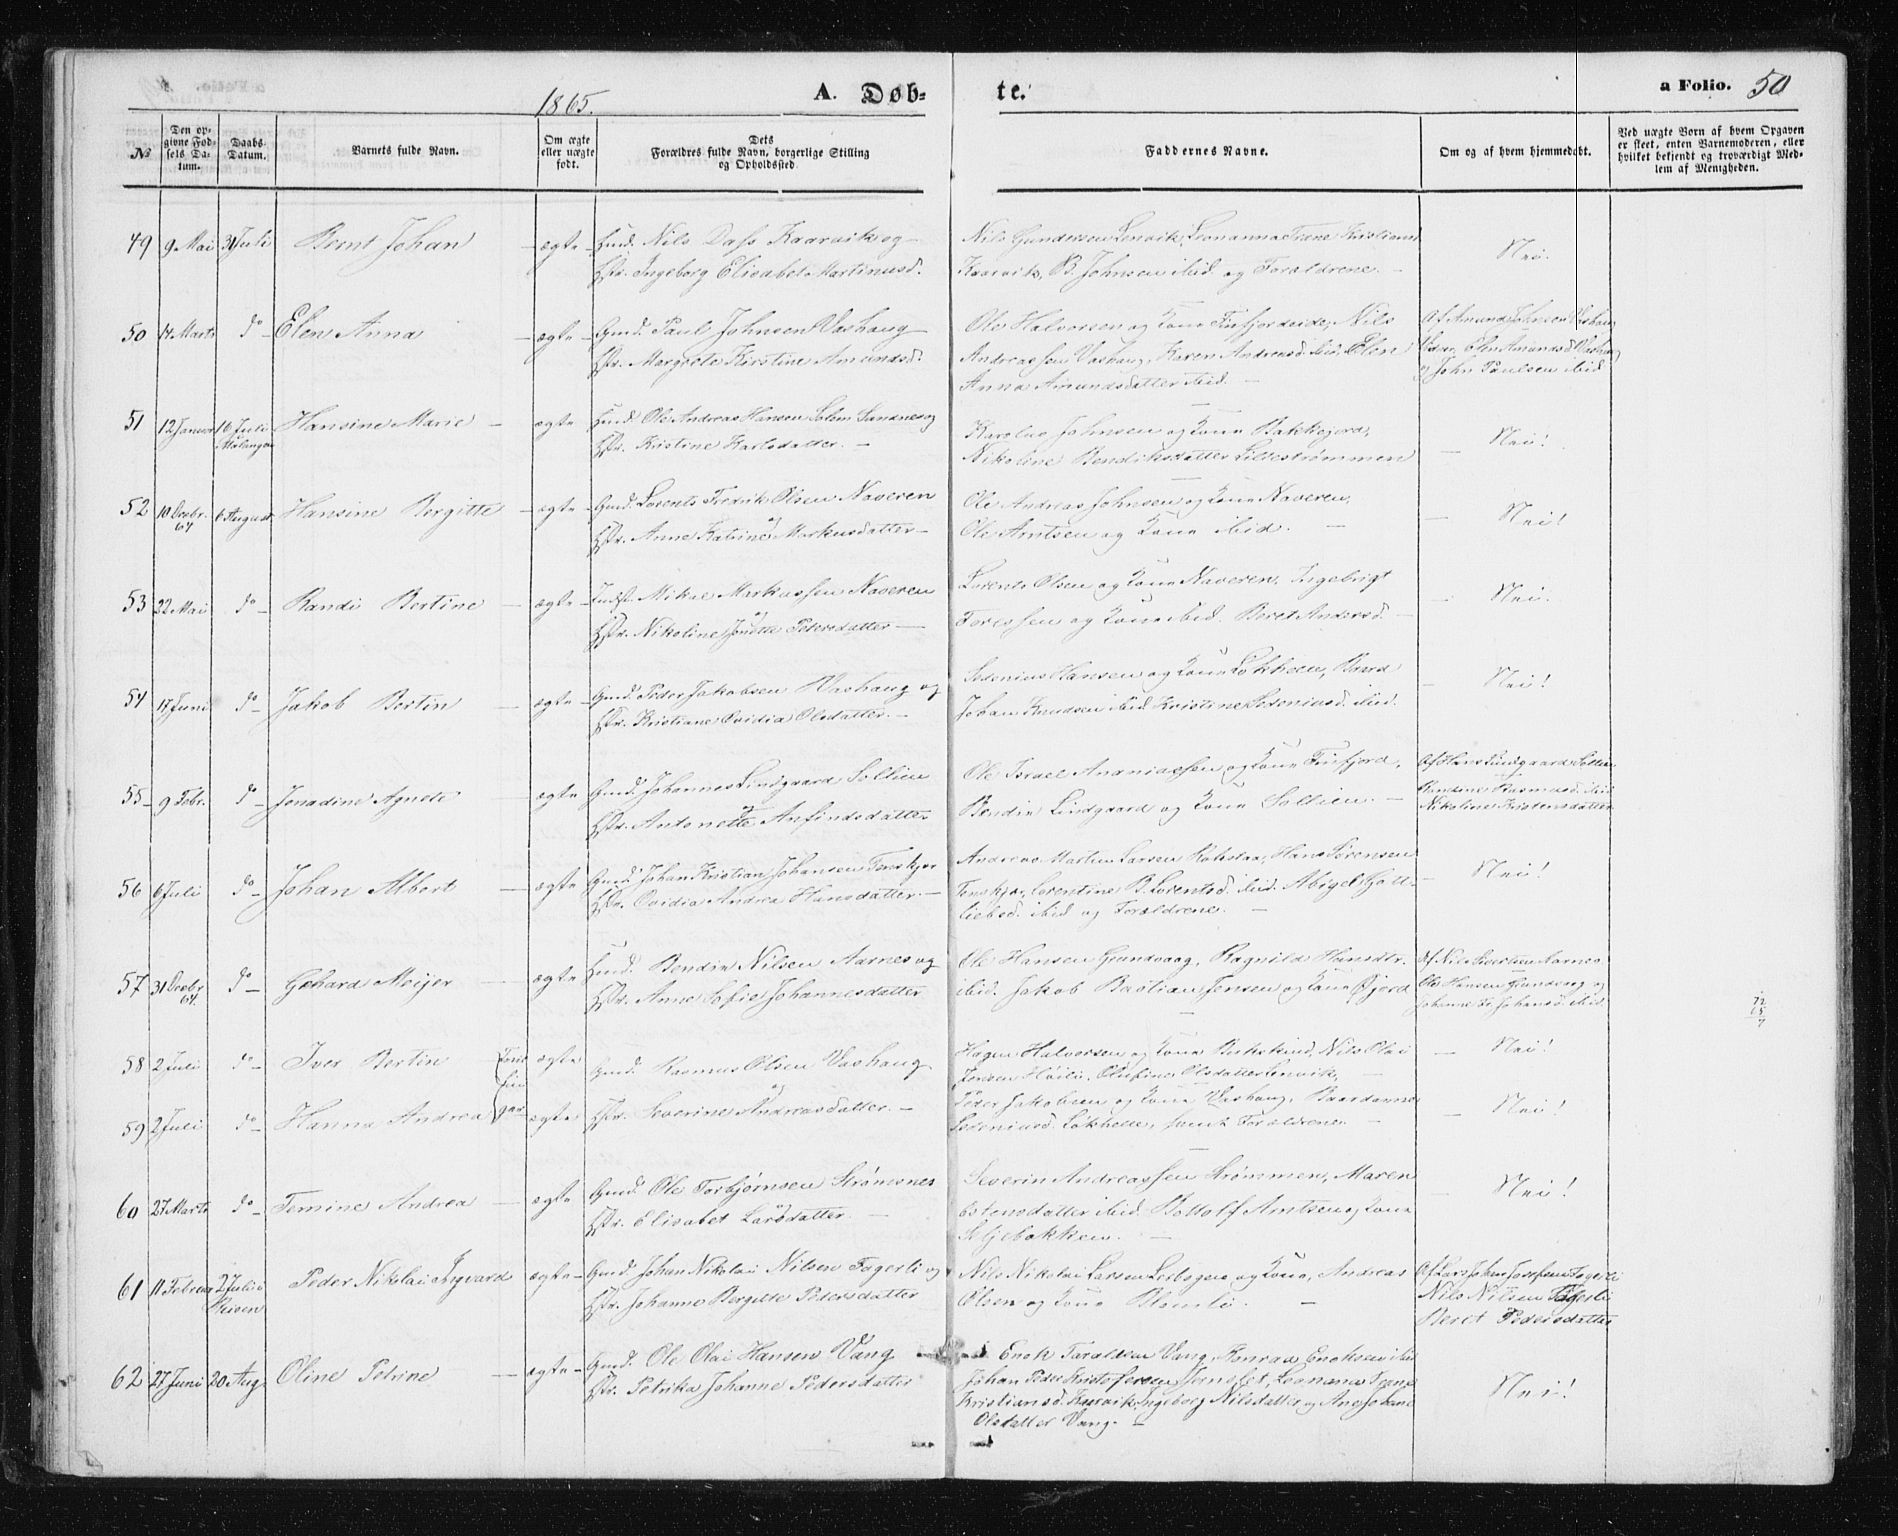 1865.
A. Døb-
te.
a Folio. 50
No
Den op-
givne Fød-
sels Da-
tum.
Daabs-
Datum.
Barnets fulde Navn.
Om ægte
eller uægte
født.
Dets
Forældres fulde Navn, borgerlige Stilling
og Opholdssted.
Faddernes Navne.
Om og af hvem hjemmedøbt.
Ved uægte Børn af hvem Opgaven
er skeet, enten Barnemoderen, eller
hvilket bekjendt og troværdigt Med-
lem af Menigheden.
49 9 Mai 31 Juli Bernt Johan ægte Nils Dass Kaarvik og
Hstr. Ingeborg Elisabet Martinusd.
Nils Gundersen Lenvik, Leonanna Trane Kristiansd
Kaarvik, B. Johnsen ibid og Forældrene.
Nei.
50 14 Marts do Elen Anna ægte Gmd. Paul Johnsen Vashaug
Hstr. Margrete Kirstine Amundsd.
Ole Halvorsen og Kone Finfjordeide, Nils
Andreassen Vashaug, Karen Andreasd. ibid, Elen
Anna Amundsdatter ibid.
Af Amund Johnsen Vashaug
Elen Amundsd. Vashaug
og John Paulsen ibid
51 12 Januar 16 Juli Malangen Hansine Marie ægte Ole Andreas Hansen Solem Sandnes og
Hstr. Kristine Karlsdatter.
Karolus Johnsen og Kone Bakkejord,
Nikoline Bendiksdatter Lillestrømmen
Nei!
52 10 Decbr. 64 6 August Hansine Bergitte ægte Gmd. Lorents Fredrik Olsen Naveren
og
Hstr. Anne Katrine Markusdatter
Ole Andreas Johnsen og Kone Naveren,
Ole Arntsen og Kone ibid.
Nei!
53 22 Mai do Randi Bertine ægte Indst. Mikal Markussen Naveren
og
Hstr. Nikoline Jonette Petersdatter
Lorents Olsen og Kone Naveren, Ingebrigt
Toressen og Kone ibid. Beret Andersd.
Nei.
54 17 Juni do Jakob Bertin ægte Gmd. Peder Jakobsen Vashaug og
Hstr. Kristiane Ovidia Olsdatter.
Sedenius Hansen og Kone Løkhelle, Baard
Johan Knudsen ibid Kristine Sedeniusd. ibid.
Nei!
55 9 Febr. do Jonadine Agnete ægte Gmd. Johannes Lindgaard Sollien
og
Hstr. Antonette Anfindsdatter
Ole Israel Ananiassen og Kone Finfjord,
Bendix Lindgaard og Kone Sollien.
Af Hans Lindgaard Sollien
Rasmusd. ibid
Nikoline Kristensdatter
56 6 Juli do Johan Albert ægte Gmd. Johan Kristian Johansen Tenskjær
Hstr. Ovidia Andrea Hansdatter.
Andreas Martin Larsen Hans Sørensen
Tenskjær, Lorentine B. Lorentsd. ibid. Abigel Gott-
liebsd. ibid og Forældrene.
Nei!
57 31 Decbr 64. do Gerhard Meijer ægte Bendix Nilsen Aarnes og
Hstr. Anne Sofie Johannesdatter
Ole Hansen Grundvaag, Ragnilda Hansdtr.
ibid. Jakob Bastian Jensen og Kone Gjord
Af Nils Aarnes
Ole Hansen Grundvaag og
Johansd. ibid
72
65
7
58 2 Juli do Iver Bertin ægte Gmd. Rasmus Olsen Vashaug
og
Hagen Halvorsen og Kone Birkskind, Nils Olai
Jensen Høili, Olufine Olsdatter Lenvik,
Nei!
59 2 Juli do Hanna Andrea ægte Hstr. Severine Andreasdatter.
Peder Jakobsen og Kone Vashaug, Baardanne
Sedeniusd. Løkhelle, samt Forældrene.
Nei!
60 27 Marts do Temine Andrea ægte Gmd. Ole Torbjørnsen Strømsnes
og
Hstr. Elisabet Larsdatter.
Severin Andreassen Strømmen, Maren
Estensdatter ibid. Bottolf Arntsen og Kone
Seljebakken.
Nei!
61 11 Februar 2 Juli i Reisen Peder Nikolai Ingvard ægte Gmd. Johan Nikolai Nilsen Fagerli og
Hstr. Johanne Bergitte Pedersdatter
Nils Nikolai Larsen og Kone, Andreas
Olsen og Kone Blomli.
Af Lars Johan Josefsen Fagerli
Nils Nilsen Fagerli
Beret Pedersdatter
62 27 Juni 20 Aug Oline Petrine ægte Gmd. Ole Olai Hansen Vang
Hstr. Petrika Johanne Pedersdatter
Enok Taraldsen Vang, Konrad Enoksen ibid
Johan Peder Kristofersen Leonanna Trane
Kristiansd. Kaarvik, Ingeborg Nilsdatter og Ane Johane
Olsdatter Vang.
Nei!